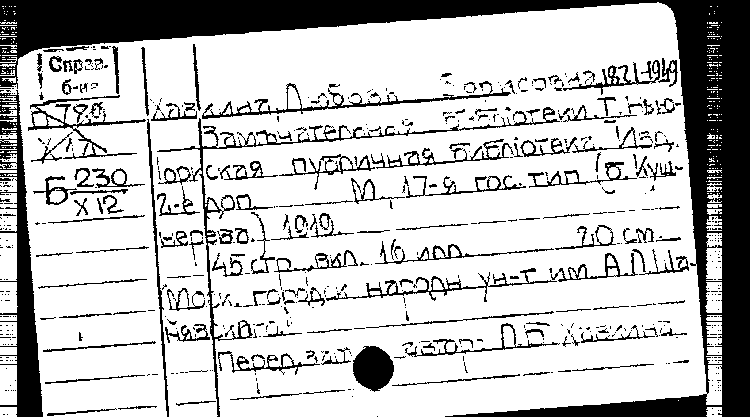 Справ.
б-ка
Б 230
X 12
Хавкина, Любовь Борисовна, 1871-1949
Замѣчательная библіотеки. I. Нью-
Іоркская публичная библіотека. Изд.
2-е доп. М., 17-я гос. тип (б. Куш-
нерева.) 1919.
45 стр., вкл. 16 илл. 20 см.
Моск. городск народн ун-т им. А.Л. Ша-
нявскаго.
Перед. автор: Л.Б. Хавкина